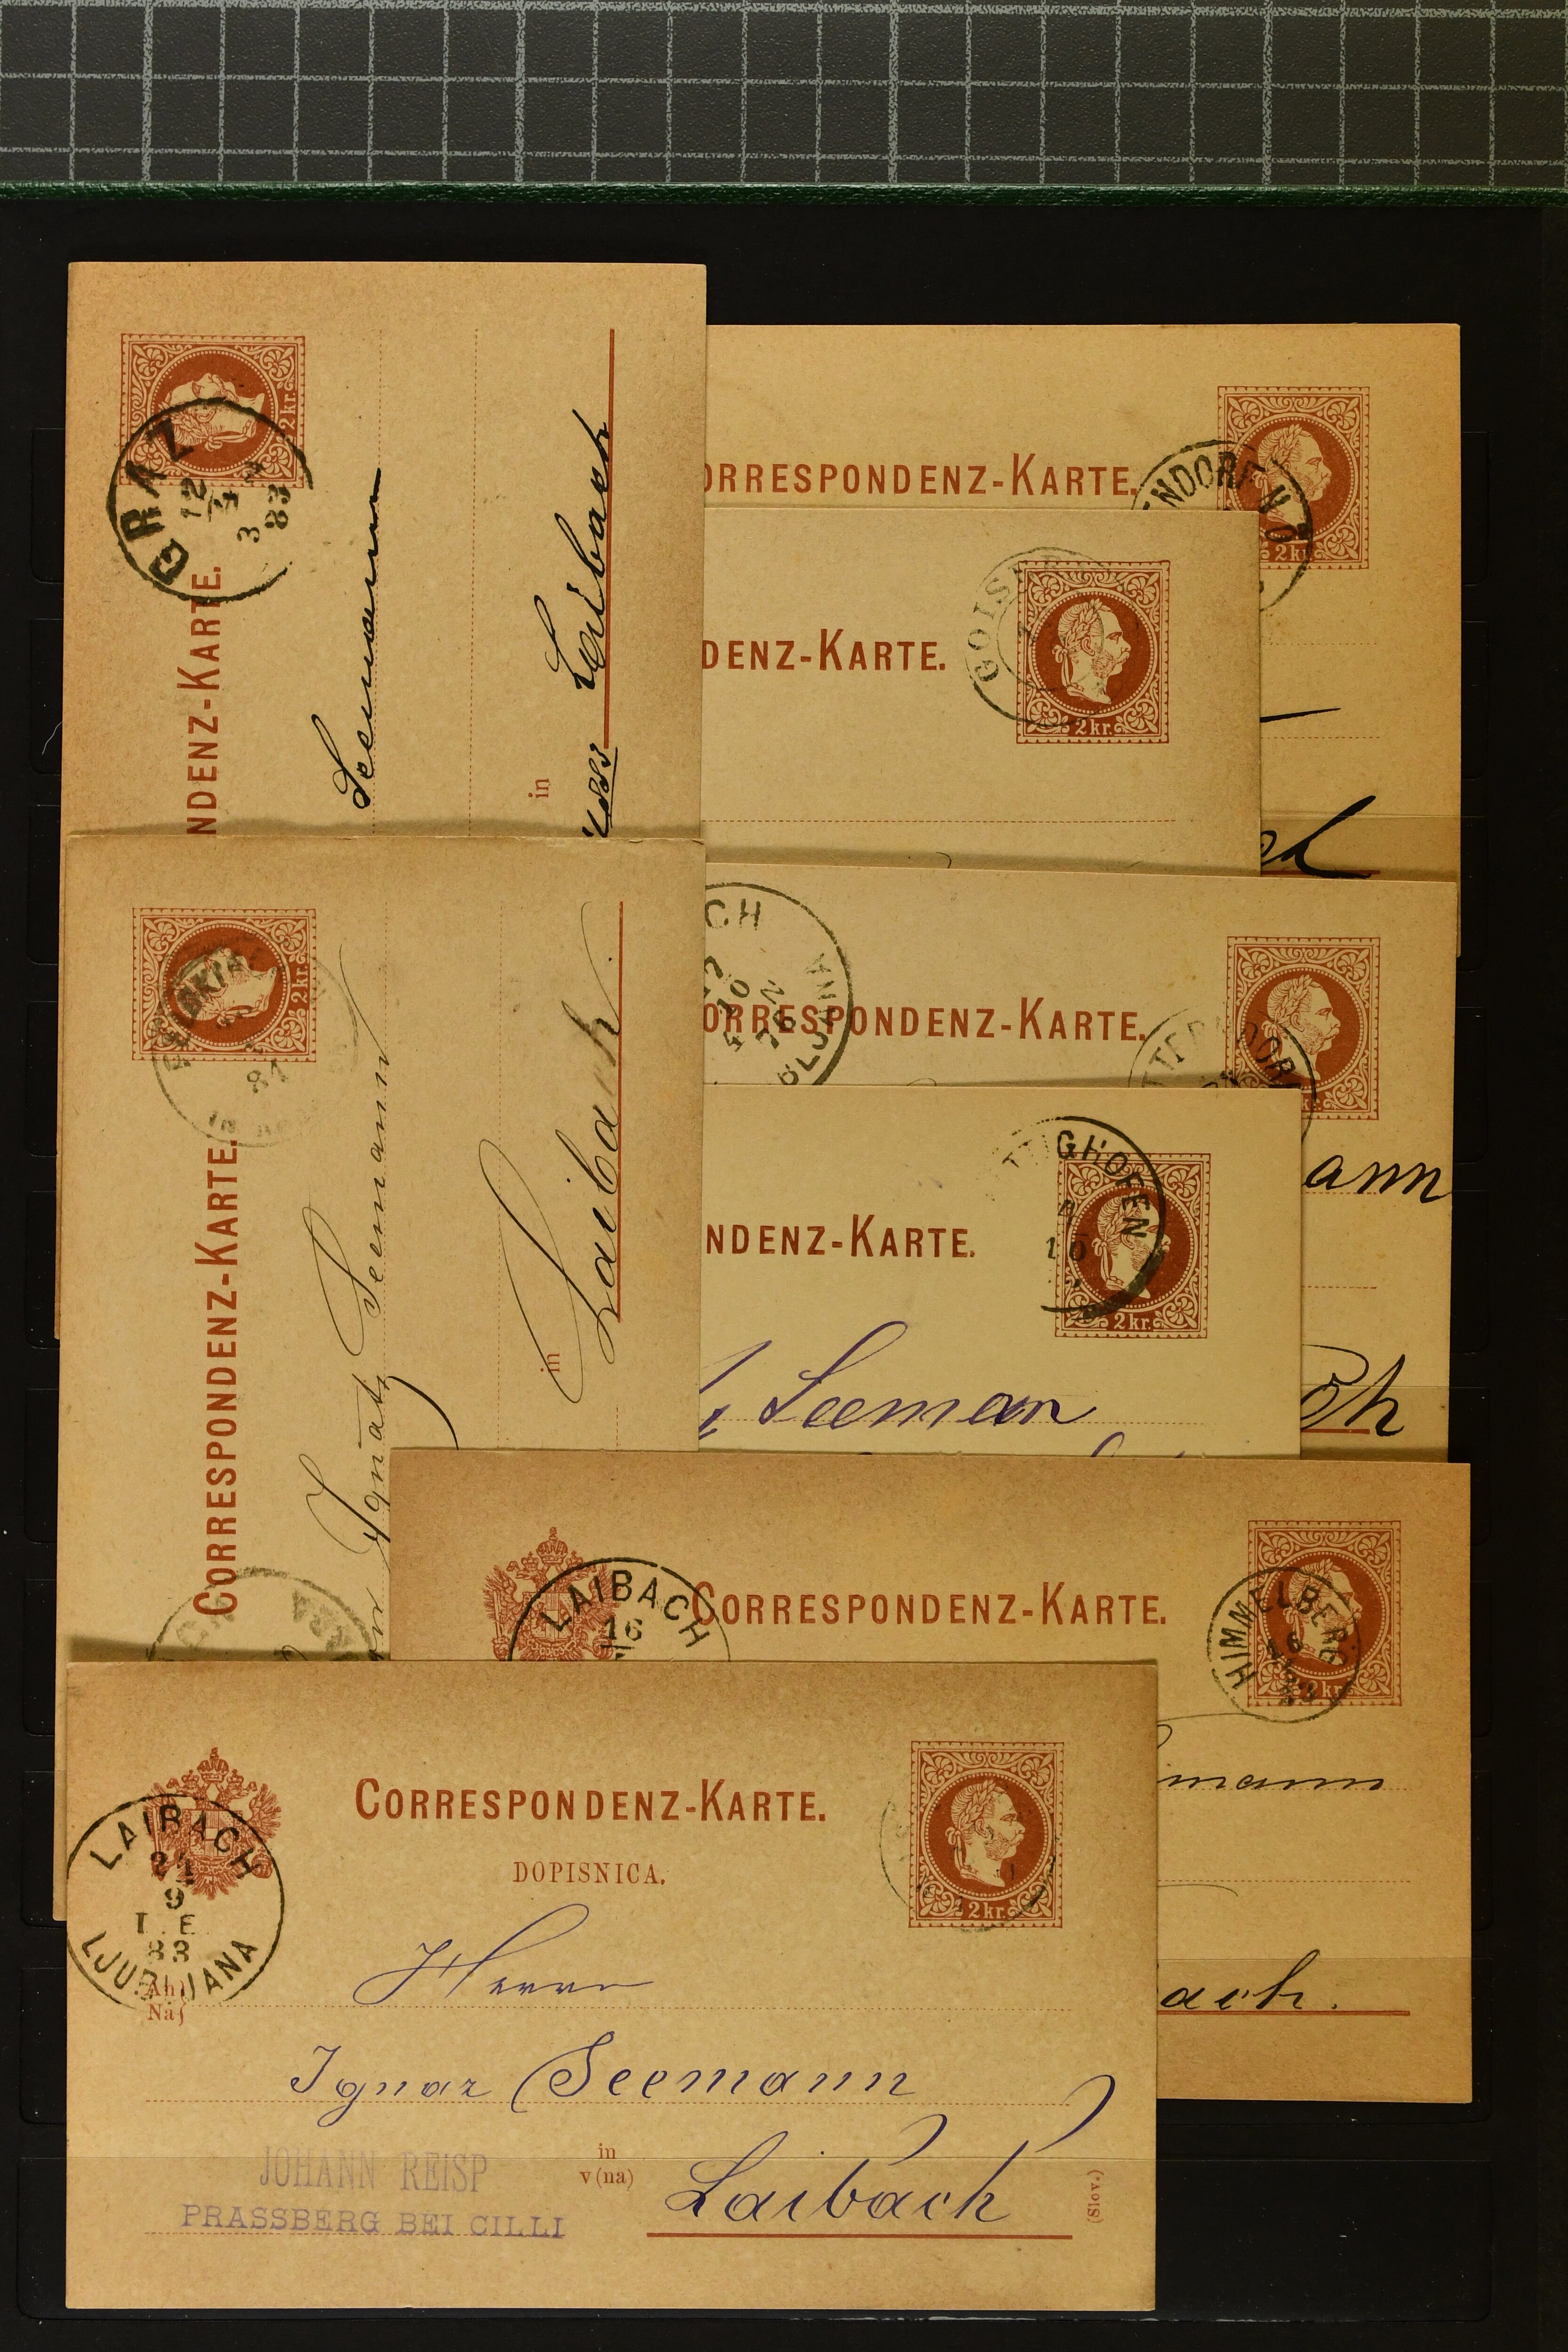 GRAZ
12
3
83
2 kr.
NDENZ-KARTE.
Seemann
in
Laibach
ORRESPONDENZ-KARTE.
ENDORF N.Ö.
2 kr.
ch
DENZ-KARTE.
GOIS
2 kr.
2 kr.
81
CORRESPONDENZ-KARTE.
Ignatz Seemann
in
Laibach
CH
10
ORRESPONDENZ-KARTE.
ann
ch
NDENZ-KARTE.
IGHOFEN
10
2 kr.
Seeman
LAIBACH
16
CORRESPONDENZ-KARTE.
HIMMELBERG
16
2 kr.
mann
ach.
CORRESPONDENZ-KARTE.
DOPISNICA.
2 kr.
LAIBACH
9
83
LJUBLJANA
An)
Na)
Herrn
Ignaz Seemann
in
v (na)
Laibach
(Slov.)
JOHANN REISP
PRASSBERG BEI CILLI